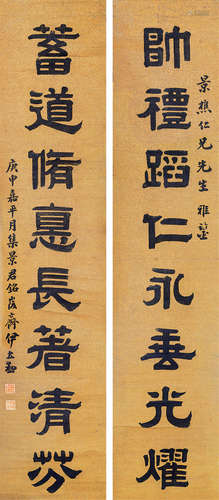 景樵仁兄先生雅鑒
帥禮蹈仁永垂光燿
蓄道脩悳長著清芬
庚申嘉平月集景君銘峻齋伊立勳